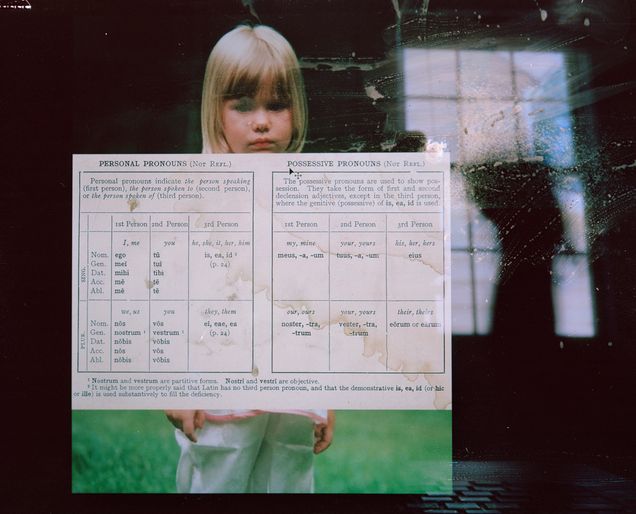 PERSONAL PRONOUNS (Not Refl.)
Personal pronouns indicate the person speaking
(first person), the person spoken to (second person),
or the person spoken of (third person).
1st Person 2nd Person 3rd Person
I, me you he, she, it, her, him
SING.
Nom. ego tū is, ea, id ²
Gen. meī tuī (p. 24)
Dat. mihi tibi
Acc. mē tē
Abl. mē tē
we, us you they, them
PLUR.
Nom. nōs vōs eī, eae, ea
Gen. nostrum ¹ vestrum ¹ (p. 24)
Dat. nōbīs vōbīs
Acc. nōs vōs
Abl. nōbīs vōbīs
POSSESSIVE PRONOUNS (Not Refl.)
The possessive pronouns are used to show pos-
session. They take the form of first and second
declension adjectives, except in the third person,
where the genitive (possessive) of is, ea, id is used.
1st Person 2nd Person 3rd Person
my, mine your, yours his, her, hers
meus, -a, -um tuus, -a, -um eius
our, ours your, yours their, theirs
noster, -tra, vester, -tra, eōrum or eārum
-trum -trum
¹ Nostrum and vestrum are partitive forms. Nostrī and vestrī are objective.
² It might be more properly said that Latin has no third person pronoun, and that the demonstrative is, ea, id (or hic
or ille) is used substantively to fill the deficiency.